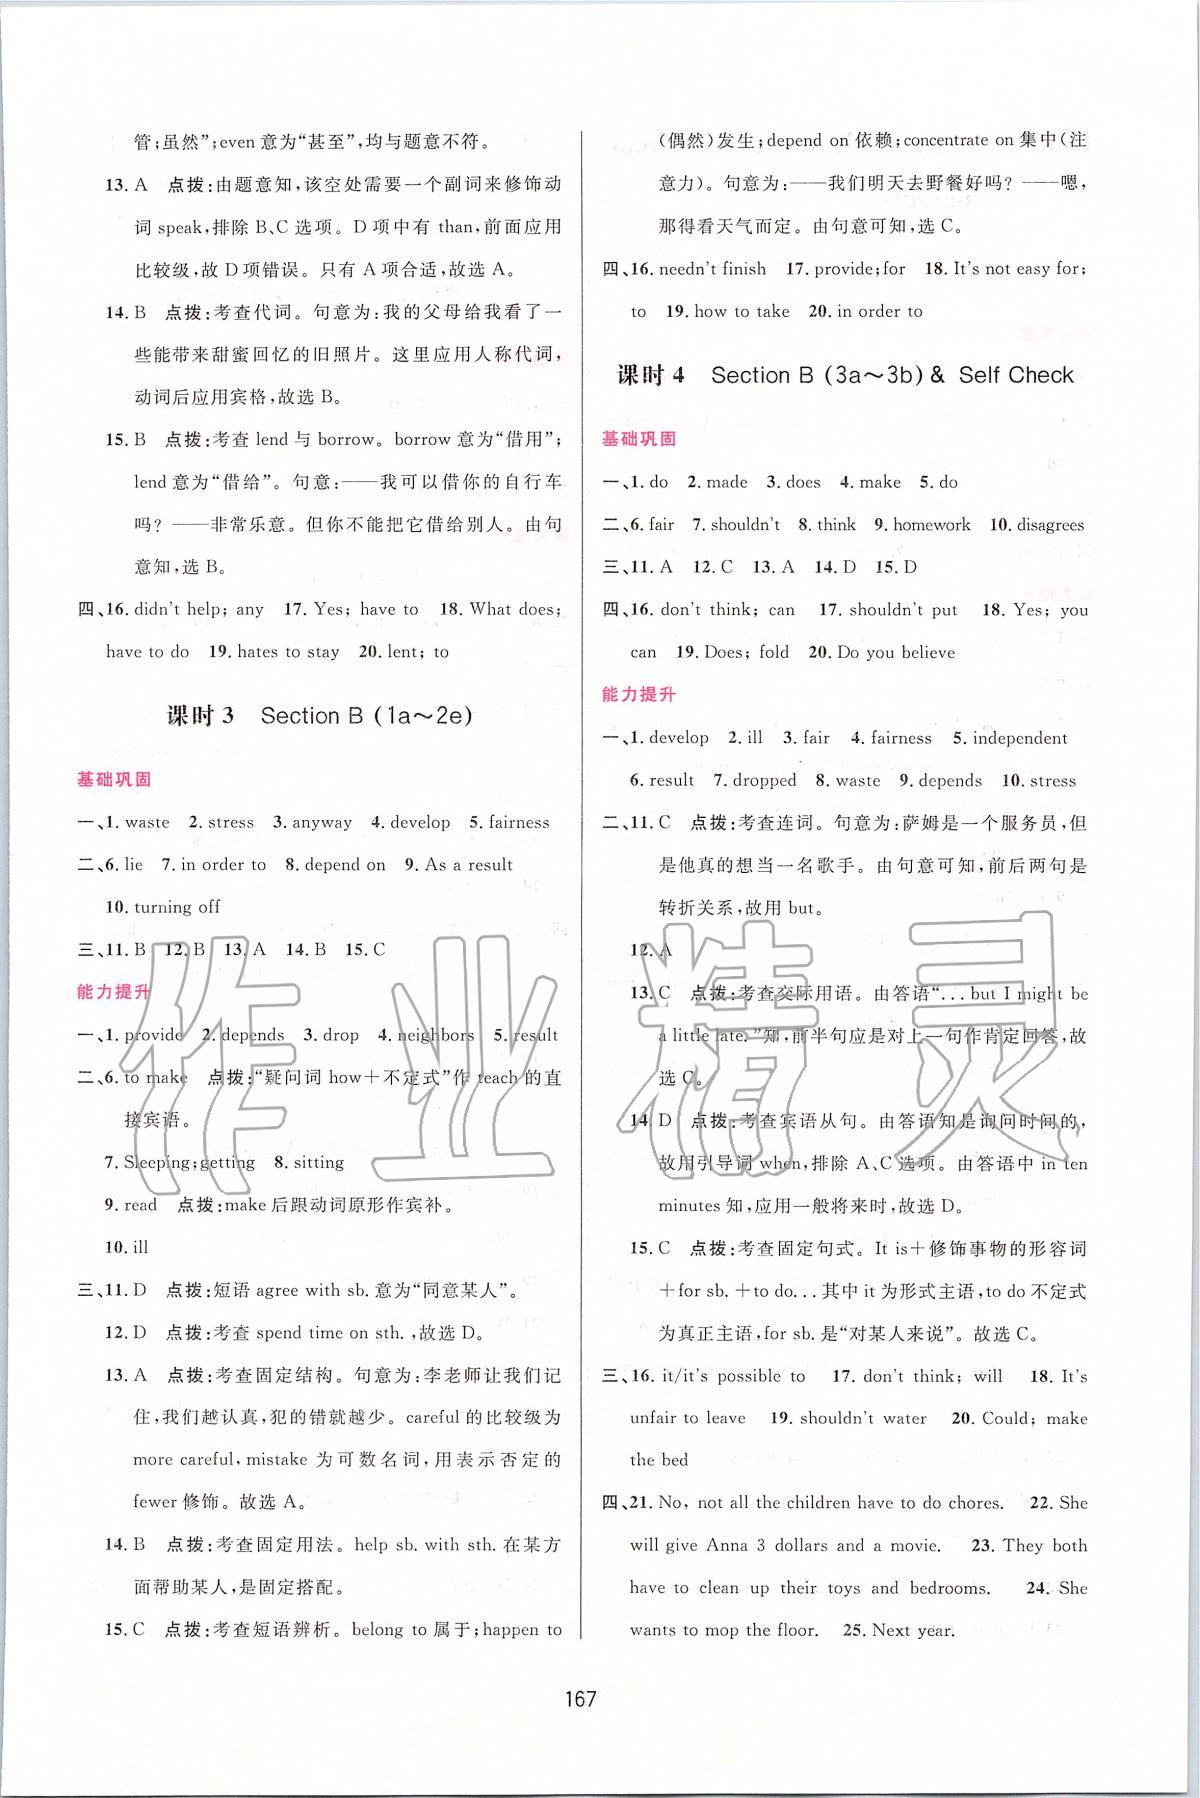 管;虽然”;even 意为“甚至”,均与题意不符。
13. A 点拨:由题意知,该空处需要一个副词来修饰动
词 speak,排除 B、C 选项。D 项中有 than,前面应用
比较级,故 D 项错误。只有 A 项合适,故选 A。
14. B 点拨:考查代词。句意为:我的父母给我看了一
些能带来甜蜜回忆的旧照片。这里应用人称代词,
动词后应用宾格,故选 B。
15. B 点拨:考查 lend 与 borrow。borrow 意为“借用”;
lend 意为“借给”。句意:——我可以借你的自行车
吗? ——非常乐意。但你不能把它借给别人。由句
意知,选 B。
四、16. didn't help; any 17. Yes; have to 18. What does;
have to do 19. hates to stay 20. lent; to
课时 3 Section B (1a～2e)
基础巩固
一、1. waste 2. stress 3. anyway 4. develop 5. fairness
二、6. lie 7. in order to 8. depend on 9. As a result
10. turning off
三、11. B 12. B 13. A 14. B 15. C
能力提升
一、1. provide 2. depends 3. drop 4. neighbors 5. result
二、6. to make 点拨:“疑问词 how＋不定式”作 teach 的直
接宾语。
7. Sleeping; getting 8. sitting
9. read 点拨:make 后跟动词原形作宾补。
10. ill
三、11. D 点拨:短语 agree with sb. 意为“同意某人”。
12. D 点拨:考查 spend time on sth. ,故选 D。
13. A 点拨:考查固定结构。句意为:李老师让我们记
住,我们越认真,犯的错就越少。careful 的比较级为
more careful, mistake 为可数名词,用表示否定的
fewer 修饰。故选 A。
14. B 点拨:考查固定用法。help sb. with sth. 在某方
面帮助某人,是固定搭配。
15. C 点拨:考查短语辨析。belong to 属于;happen to
(偶然)发生;depend on 依赖;concentrate on 集中(注
意力)。句意为:——我们明天去野餐好吗? ——嗯,
那得看天气而定。由句意可知,选 C。
四、16. needn't finish 17. provide; for 18. It's not easy for;
to 19. how to take 20. in order to
课时 4 Section B (3a～3b) & Self Check
基础巩固
一、1. do 2. made 3. does 4. make 5. do
二、6. fair 7. shouldn't 8. think 9. homework 10. disagrees
三、11. A 12. C 13. A 14. D 15. D
四、16. don't think; can 17. shouldn't put 18. Yes; you
can 19. Does; fold 20. Do you believe
能力提升
一、1. develop 2. ill 3. fair 4. fairness 5. independent
6. result 7. dropped 8. waste 9. depends 10. stress
二、11. C 点拨:考查连词。句意为:萨姆是一个服务员,但
是他真的想当一名歌手。由句意可知,前后两句是
转折关系,故用 but。
12. A
13. C 点拨:考查交际用语。由答语“... but I might be
a little late.”知,前半句应是对上一句作肯定回答,故
选 C。
14. D 点拨:考查宾语从句。由答语知是询问时间的,
故用引导词 when,排除 A、C 选项。由答语中 in ten
minutes 知,应用一般将来时,故选 D。
15. C 点拨:考查固定句式。It is＋修饰事物的形容词
＋for sb. ＋to do... 其中 it 为形式主语,to do 不定式
为真正主语,for sb. 是“对某人来说”。故选 C。
三、16. it/it's possible to 17. don't think; will 18. It's
unfair to leave 19. shouldn't water 20. Could; make
the bed
四、21. No, not all the children have to do chores. 22. She
will give Anna 3 dollars and a movie. 23. They both
have to clean up their toys and bedrooms. 24. She
wants to mop the floor. 25. Next year.
167
作业精灵